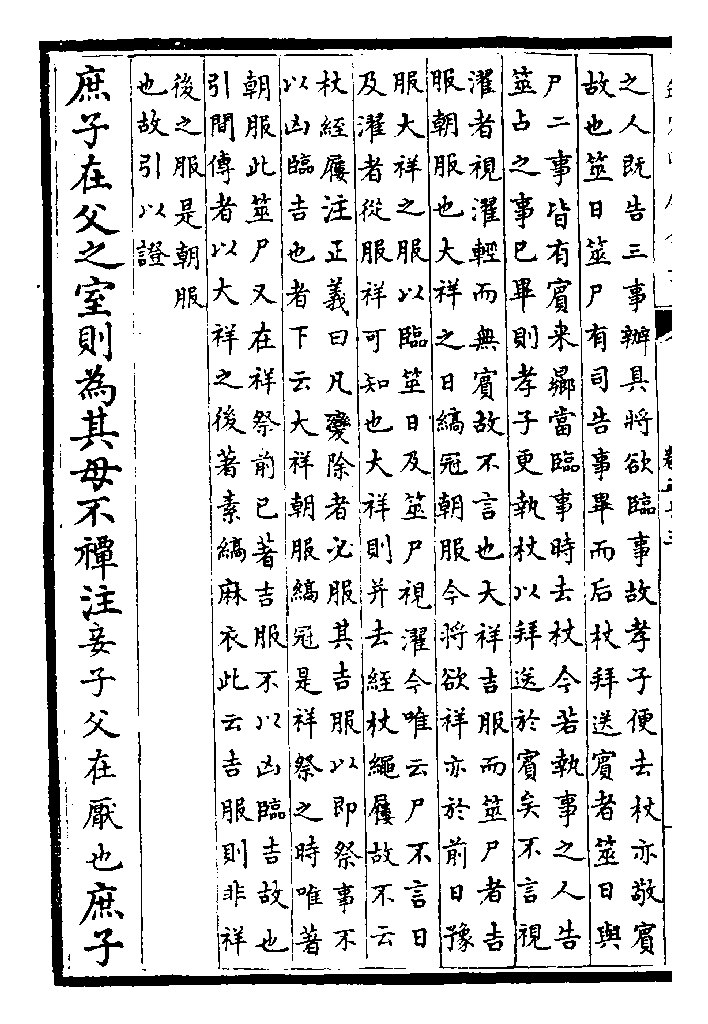 之人既告三事辦具將欲臨事故孝子便去杖亦敬賓
故也筮日筮尸有司告事畢而后杖拜送賓者筮日與
尸二事皆有賓来曏當臨事時去杖今若執事之人告
筮占之事已畢則孝子更執杖以拜送於賓矣不言視
濯者視濯輕而無賓故不言也大祥吉服而筮尸者吉
服朝服也大祥之日縞冠朝服今將欲祥亦於前日豫
服大祥之服以臨筮日及筮尸視濯今唯云尸不言日
及濯者從服祥可知也大祥則并去絰杖繩屨故不云
杖絰屨注正義曰凡變除者必服其吉服以即祭事不
以凶臨吉也者下云大祥朝服縞冠是祥祭之時唯著
朝服此筮尸又在祥祭前已著吉服不以凶臨吉故也
引間傳者以大祥之後著素縞麻衣此云吉服則非祥
後之服是朝服
也故引以證
庶子在父之室則為其母不禫注妾子父在厭也庶子